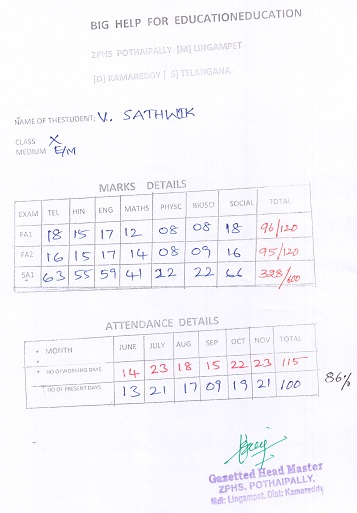 BIG HELP FOR EDUCATIONEDUCATION
ZPHS POTHAIPALLY [M] LINGAMPET
[D] KAMAREDDY [ S] TELANGANA
NAME OF THESTUDENT: V. SATHWIK
CLASS X
MEDIUM E/M
MARKS DETAILS
EXAM TEL HIN ENG MATHS PHYSC BIOSCI SOCIAL TOTAL
FA1 18 15 17 12 08 08 18 96/120
FA2 16 15 17 14 08 09 16 95/120
SA1 63 55 59 41 22 22 66 328/600
ATTENDANCE DETAILS
MONTH JUNE JULY AUG SEP OCT NOV TOTAL
NO OF WORKING DAYS 14 23 18 15 22 23 115
NO OF PRESENT DAYS 13 21 17 09 19 21 100 86%
Gazetted Head Master
ZPHS. POTHAIPALLY.
Mdl: Lingampet, Dist: Kamareddy